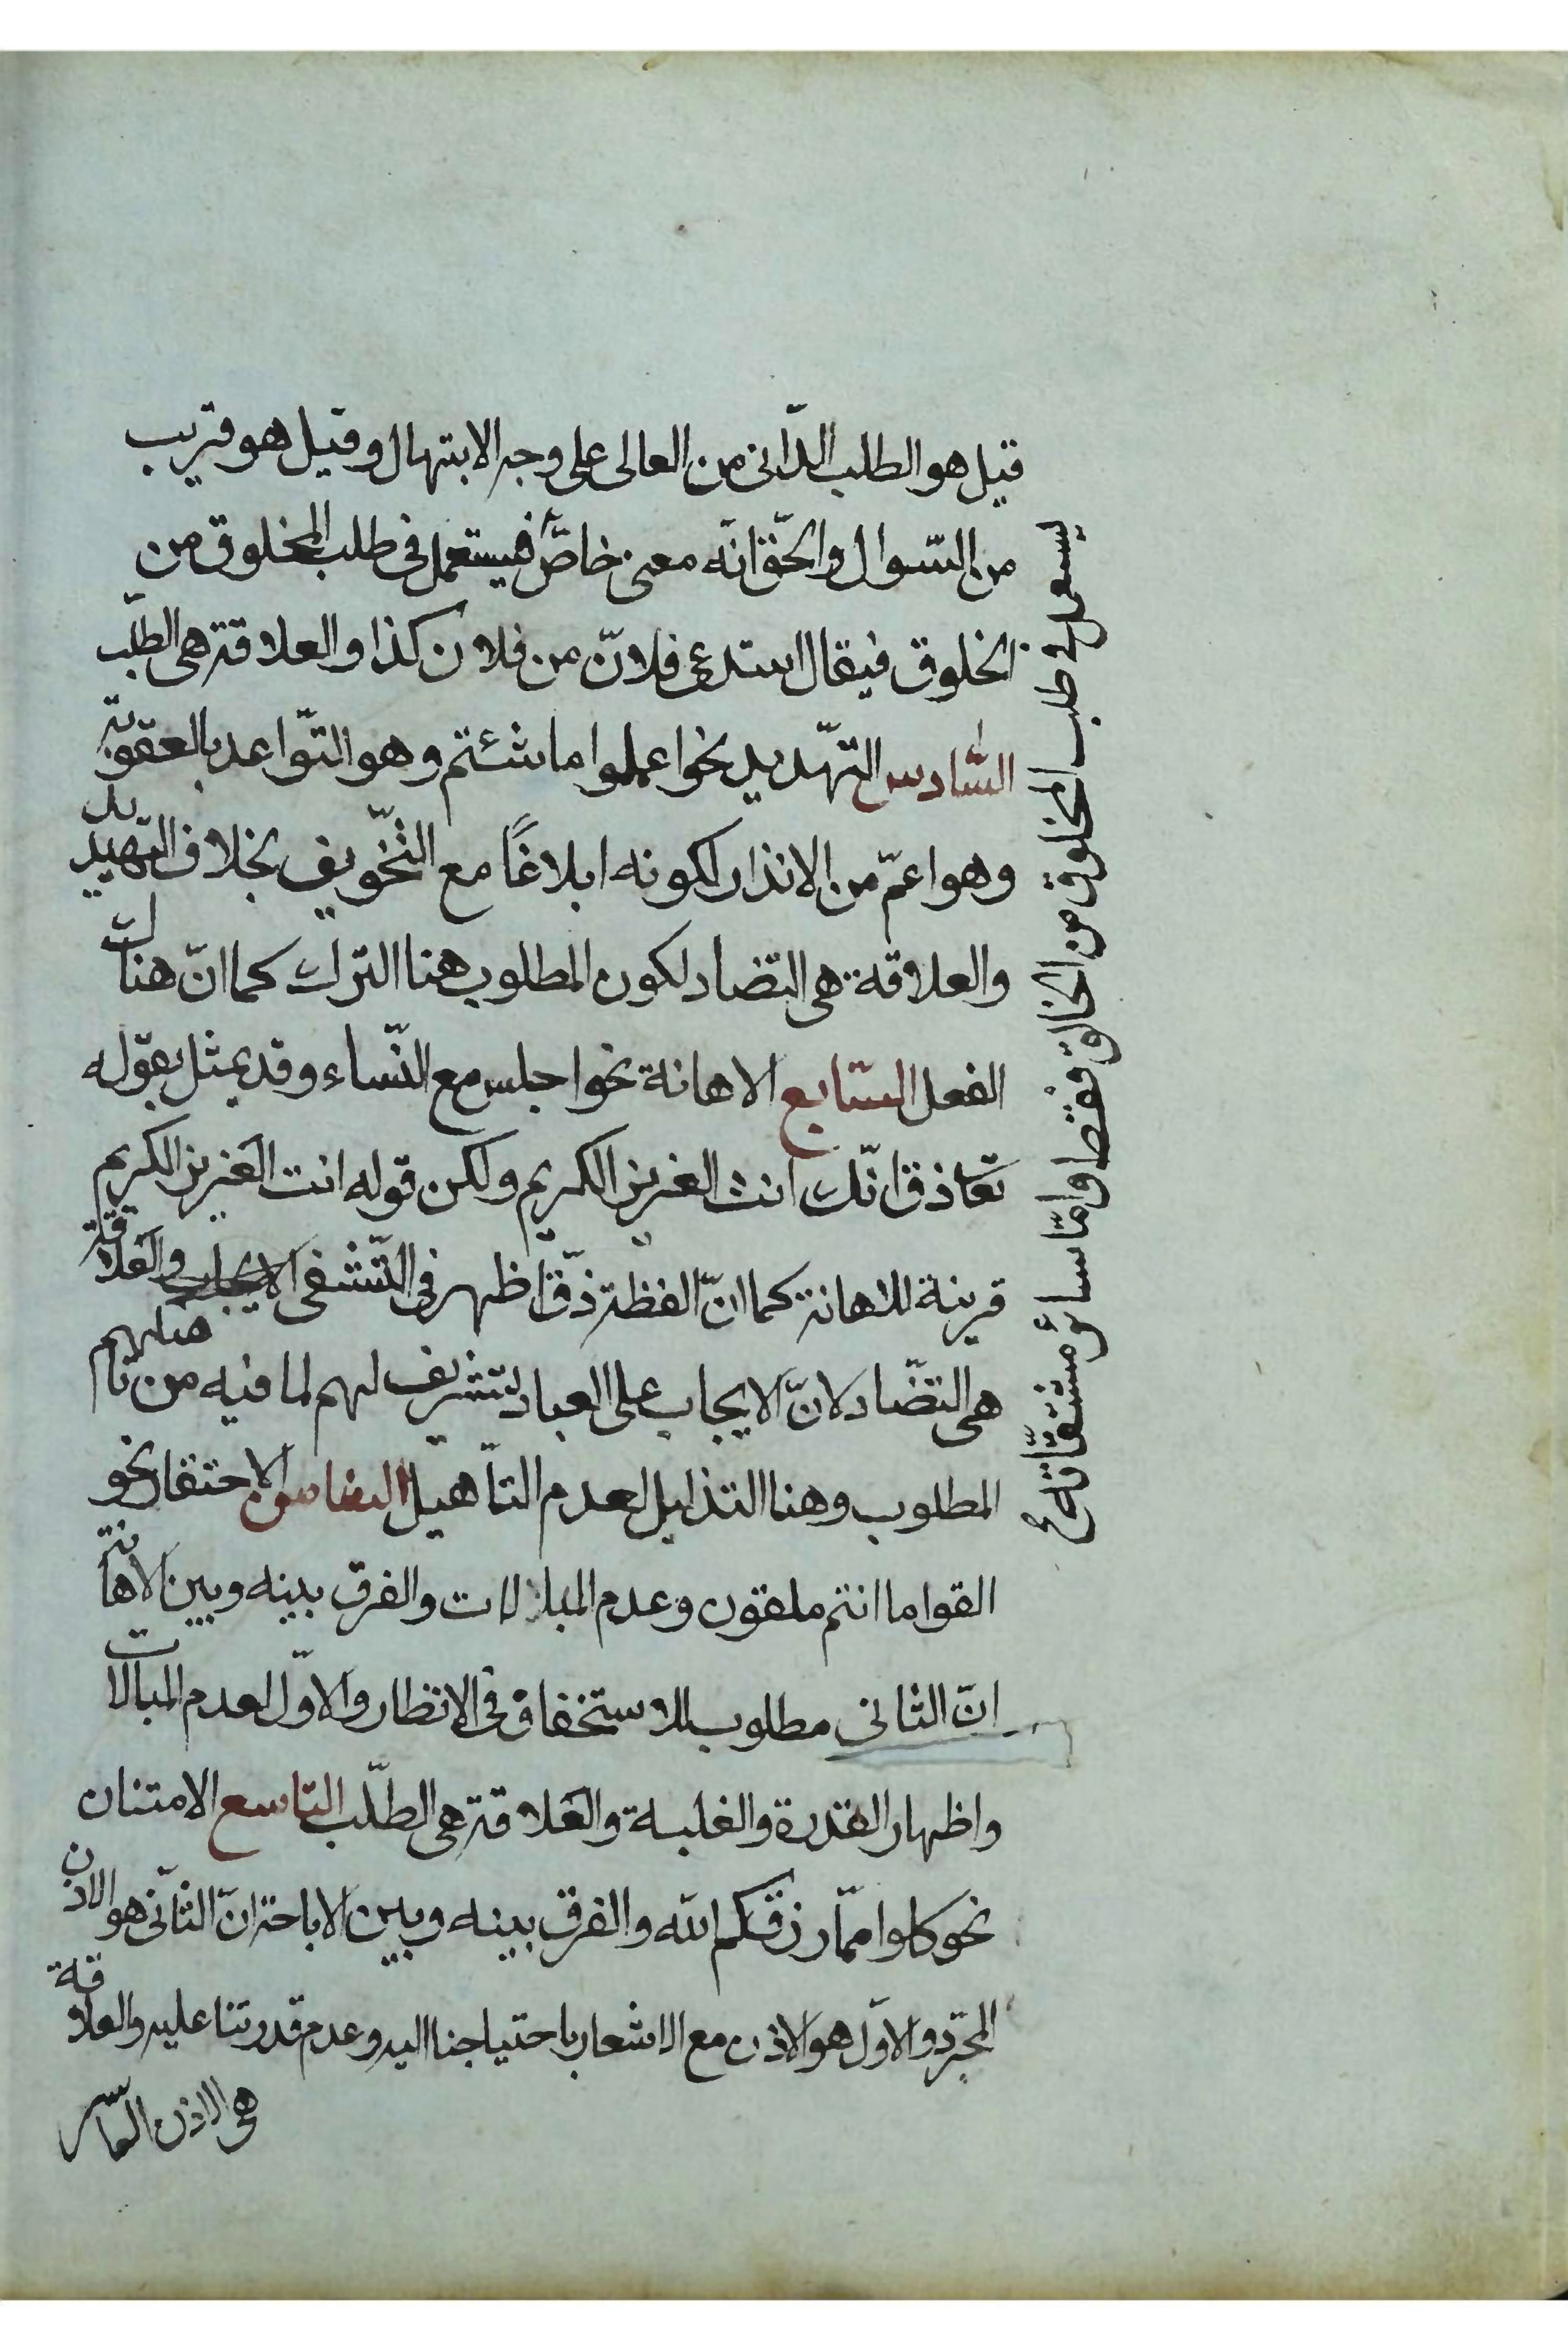 قيل هو الطلب الدّانى من العالى على وجه الابتهال وقيل هو قريب
من السّوال والحّق انّه معنى خاصّ فيستعمل فى طلب المخلوق من
الخلوق فيقال استدعى فلانّ من فلان كذا والعلاقة هى الطلّب
السّادس التهّديد نحو اعملوا ما شئتم وهو التوّاعد بالعقوبة
وهو اعمّ من الانذار لكونه ابلاغًا مع التّخّويف بخلاف التهديد
والعلاقة هى التضاد لكون المطلوب هنا الترك كما انّ هناك
الفعل السّابع الاهانة نحو اجلس مع النّساء وقد يمثل بقوله
تعا ذق انّك انت العزيز الكريم ولكن قوله انت العزيز الكريم
قرينة للاهانة كما انّ الفظة ذّق اظهر فى التّشفى والعلاقة
هى التضّاد لانّ الايجاب على العباد لتشريف لهم لما فيه من تأهيلهم
المطلوب وهنا التذليل لعدم التأهيل الثامن الاحتقار نحو
القوا ما انتم ملقون وعدم المبلالات والفرق بينه وبين الاهانة
انّ الثانى مطلوب للاستخفاف فى الانظار والاوّل لعدم المبالات
واظهار القدرة والغلبة والعلاقة هى الطلّب التاسع الامتنان
نحو كلوا ممّا رزقكم الله والفرق بينه وبين الاباحة انّ الثّانى هو الاذن
المجرّد والاوّل هو الاذن مع الاشعار باحتياجنا اليه وعدم قدرتنا عليه والعلاقة
هى الاذن العاشر
يستعمل فى طلب المخلوق من الخالق فقط وامّا سائر مشتقّاته ع